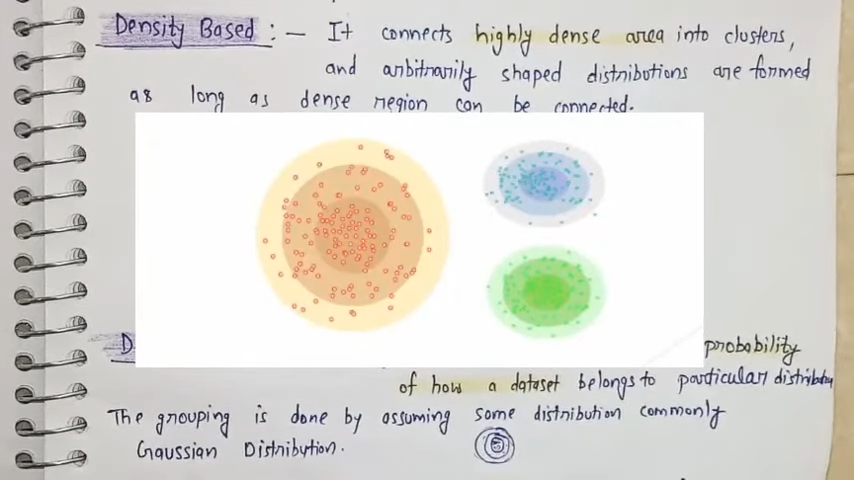 Density Based :- It connects highly dense area into clusters,
and arbitrarily shaped distributions are formed
as long as dense region can be connected.
D
probability
of how a dataset belongs to particular distribution
The grouping is done by assuming some distribution commonly
Gaussian Distribution.